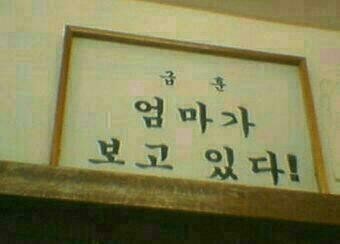 급훈
엄마가
보고 있다!